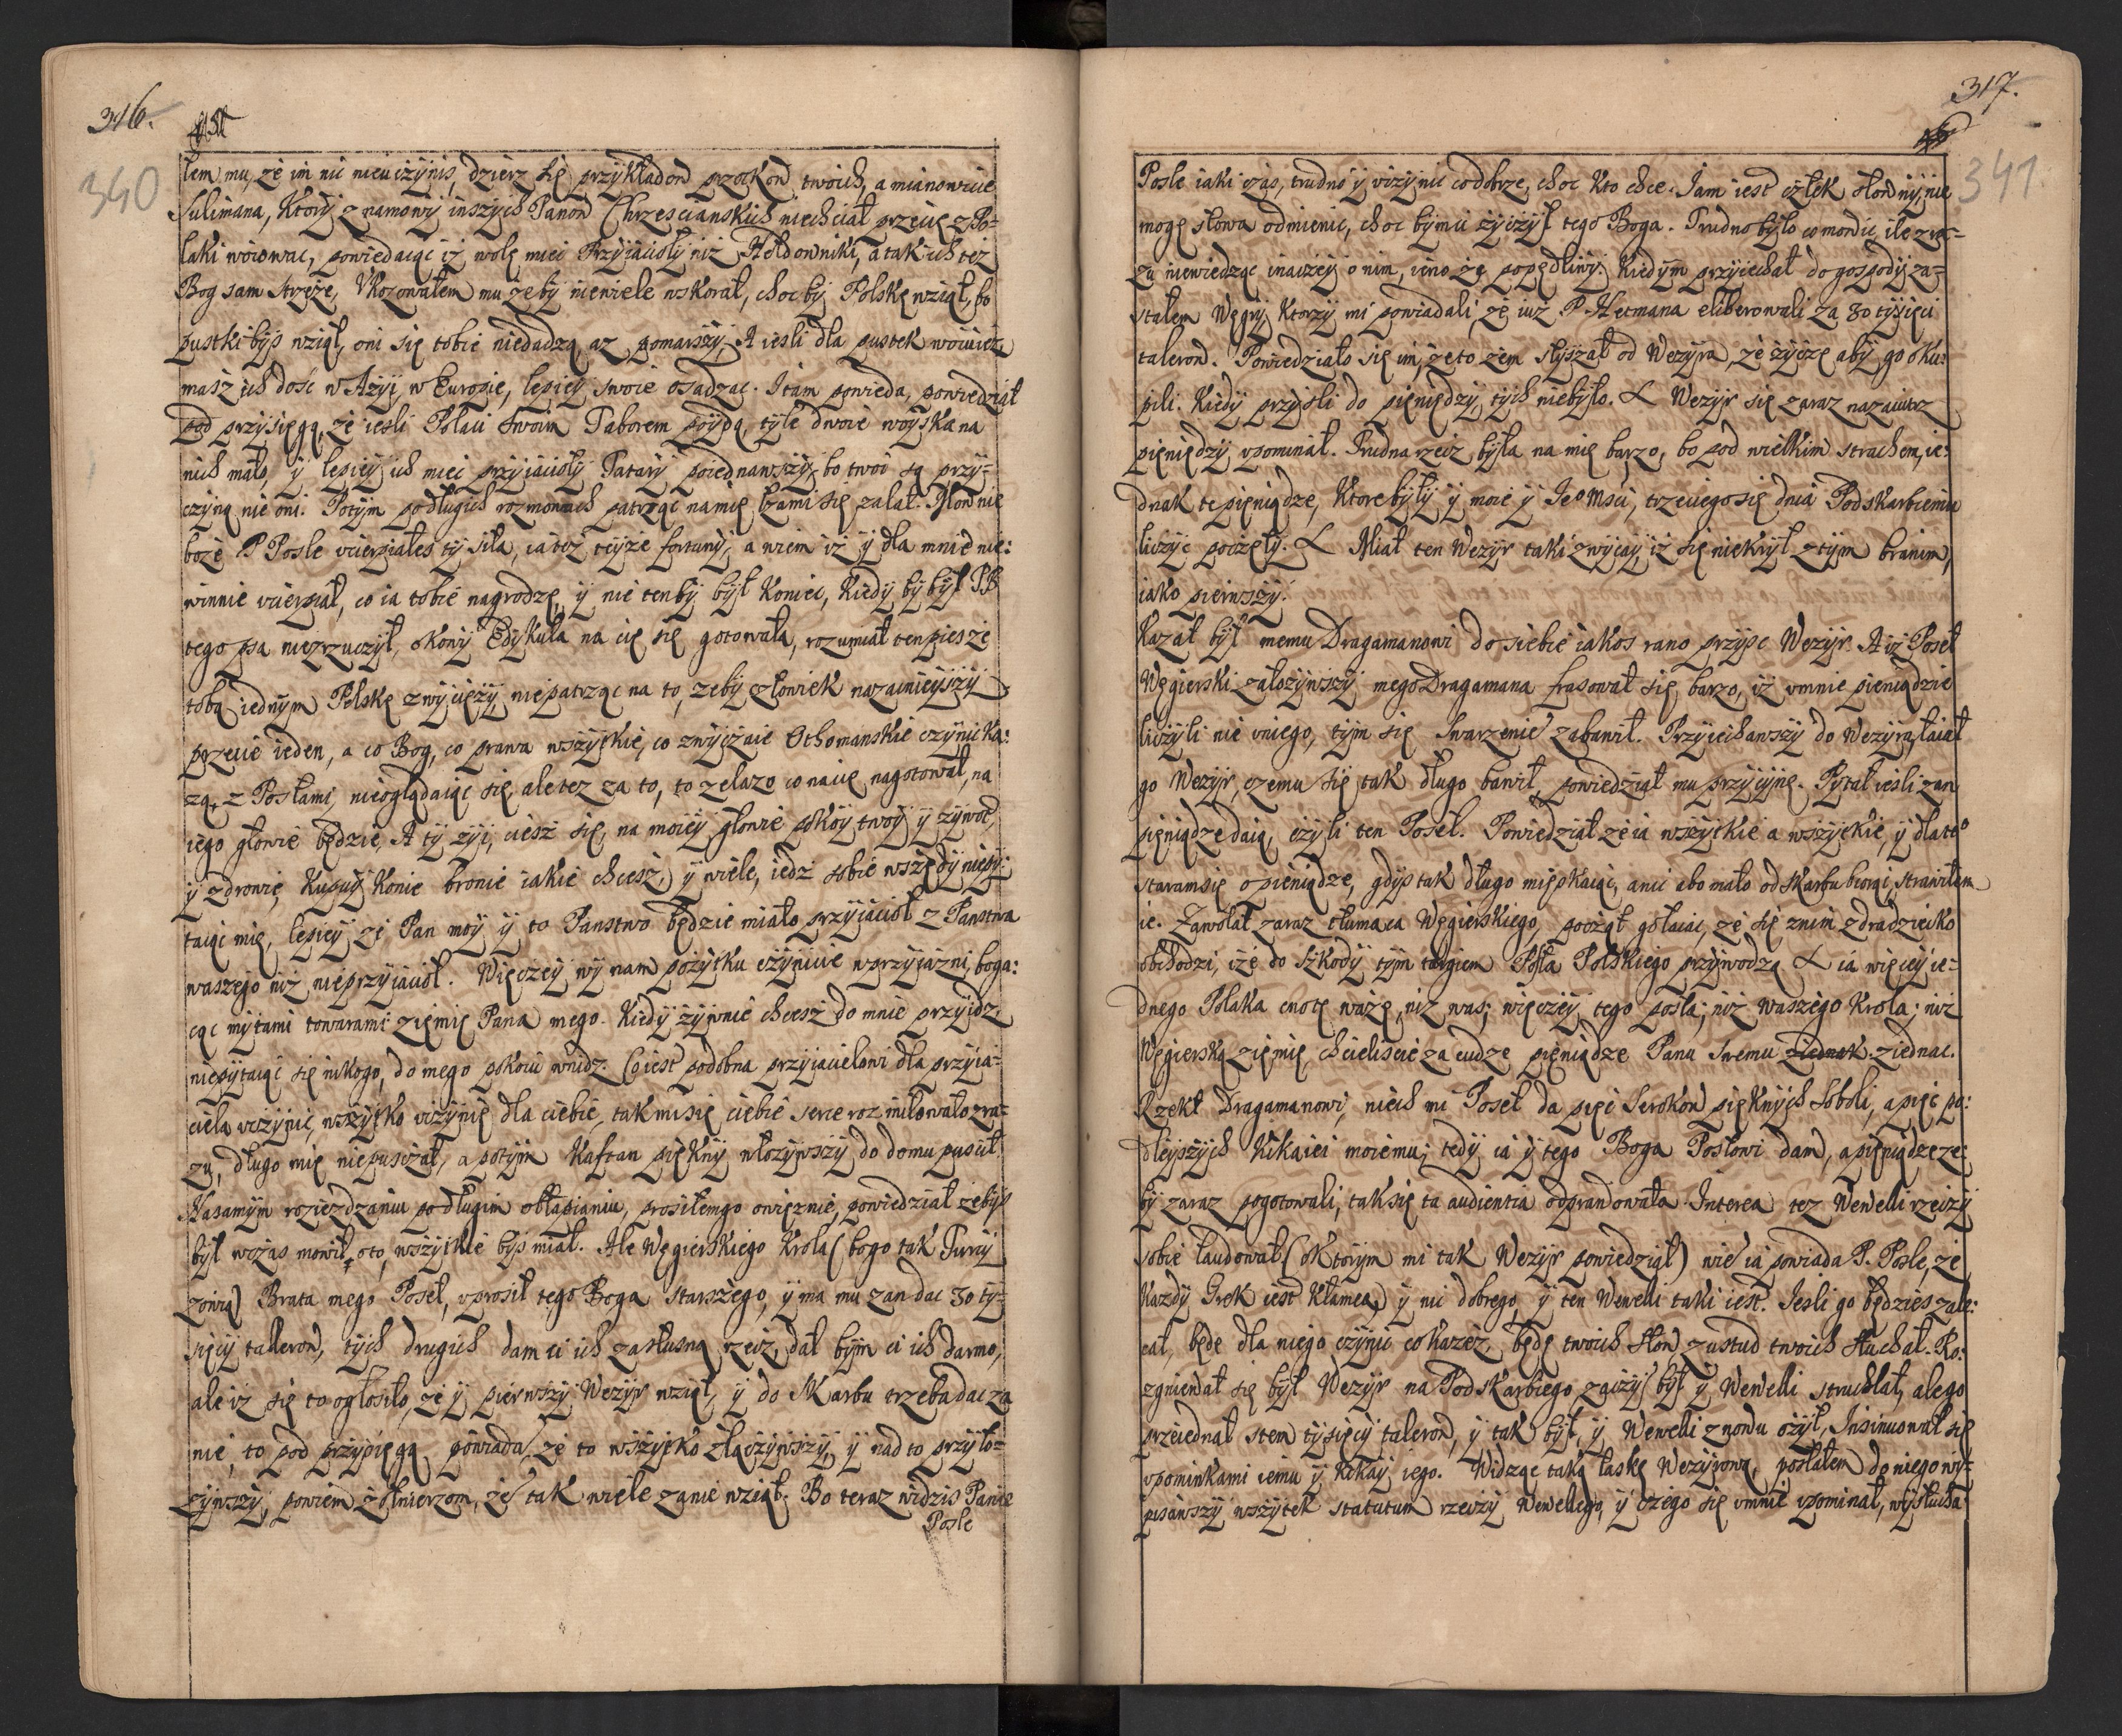 316.
340
lem mu, że im nic nieuczynis, dzierz się przykładow przotkow twoich, a mianowicie
Sulimana, Ktory z namowy inszych Panow Chrzescianskich niechciał przecię z Po-
laki woiowac, powiedaiąc iż wolę miec Przyiacioły niż Hołdowniki, a takich też
Bog sam strzeże, Vkozowałem mu żeby niewiele wskorał, choc by Polskę wziął, bo
pustki bys wziął, oni się tobie niedadzą az pomarszy, A iesli dla pustek woiuiesz
masz ich dosc w Azyi, w Europie, lepiey swoie osadzac. I tam powieda, powiedział
pod przysięgą, że iesli Polaci swoim Taborem poydą, tyle dwoie woyska na
nich mało, y lepiey ich miec przyiacioły Tatary poiednawszy, bo twoi są przy-
czyną nie oni. Potym po długich rozmowach patrząc na mię łzami się zalał. Mow nie
boże P Posle vcierpiałes ty siła, ia też teyze fortuny, a wiem iż y dla mnie nie:
winnie vcierpiał, co ia tobie nagrodzę, y nie tenby był Koniec, Kiedy by był PB
tego psa nieprzuczył, okowy Edykuła na cię się gotowała, rozumiał ten pies że
tobą iednym Polskę zwyciężył, niepatrząc na to, żeby człowiek nazacnieyszy
przecie ieden, a co Bog, co prawa wszytkie, co zwyczaie Othomanskie czynic ka:
zą, z Posłami, nieoglądaiąc się, ale tez za to, to żelazo co na cię nagotował, na
iego głowie będzie, A ty żyi, ciesz się, na moiey głowie pokoy twoy y żywot,
y zdrowie, Kupuy Konie bronie iakie chcesz, y wiele, iedz sobie wszędy niepy:
taiąc mię, lepiey że Pan moy y to Panstwo będzie miało przyiacioł z Panstwa
waszego niż nieprzyiacioł. Więczey wy nam pożytku czynicie w przyiazni, boga:
cąc mytami towarami ziemię Pana mego. Kiedy żywnie chcesz do mnie przyidz,
niepytaiąc się nikogo, do mego pokoiu wnidz. Co iest podobna przyiacielowi dla przyia-
ciela vczynic, wszytko vczynię dla ciebie, tak mi się ciebie serce rozmiłowało zra-
zu, długo mię niepuszczał, a potym Kaftan piękny włożywszy do domu puscił.
Nasamym roziezdzaniu po długim obłapianiu, prosiłem go o więznie, powiedział żebys
był wczas mowił, o to, wszytkie bys miał. Ale Węgierskiego Krola (bo go tak Turcy
zowią) Brata mego Poseł, vprosił tego Boga starszego, y ma mu zan dac 30 ty-
sięcy talerow, tych drugich dam ci ich za słuszną rzecz, dał bym ci ich darmo,
ale iż się to ogłosiło, że y pierwszy Wezyr wziął, y do Skarbu trzeba dac za
nie, to pod przysięgą powiada, że to wszytko złączywszy, y nad to przyło-
żywszy, powiem żołnierzom, że tak wiele za nie wziął. Bo teraz widzis Panie
Posle
317.
341
Posle iaki czas, trudno y vczynic co dobrze, choc kto chce. Iam iest człek słowny, nie
mogę słowa odmienic, choc bym ci życzył tego Boga. Trudno było co mowic, ile zra-
zu niewiedząc inaczey o nim, ieno że popędliwy. Kiedym przyiechał do gospody za-
stałem Węgry, Ktorzy mi powiadali że iuż P. Hetmana eliberowali za 30 tysięci
talerow. Powiedziało się im, że to żem słyszał od Wezyra, że życzę aby go oku:
pili. Kiedy przyszli do pieniędzy, tych niebyło. & Wezyr się zaraz nazaiutrz
pieniędzy vpominał. Trudna rzecz była na mię barzo, bo pod wielkim strachem, ie:
dnak te pieniądze, Ktore były y moie y Ieo Msci, trzeciego się dnia Podskarbiemu
liczyc poczęły. & Miał ten Wezyr taki zwyczay, iż się niekrył z tym braniem,
iako pierwszy.
Kazał był memu Dragamanowi do siebie iakos rano przysc Wezyr. A iż Poseł
Węgierski założywszy mego Dragamana frasował się barzo, iż v mnie pieniądze
liczyli nie v niego, tym się swarzenie zabawił. Przyiechawszy do Wezyra, łaiał
go Wezyr, czemu się tak długo bawił, powiedział mu przyczynę. Pytał iesli zan
pieniądze daią, czyli ten Poseł. Powiedział że ia wszytkie a wszytkie, y dla teo
staram się o pieniądze, gdys tak długo mięszkaiąc, a nic abo mało od Skarbu biorąc, strawiłem
ie. Zawołał zaraz tłumaca Węgierskiego, począł go łaiac, że się z nim zdradziecko
obchodzi, iże do szkody tym targiem Posła Polskiego przywodzą & ia więcey ie-
dnego Polaka cnotę ważę, niz was; więczey tego posła; niż waszego Krola; niż
Węgierską ziemię, chcieliscie za cudze pieniądze Panu swemu ziednac.
Rzekł Dragamanowi, niech mi Poseł da pięc Serokow pięknych soboli, a pięc po:
dleyszych Kikaiei moiemu; tedy ia y tego Boga Posłowi dam, a pieniądze że:
by zaraz pogotowali, tak się ta audientia odprawowała. Interea tez Wewelli rzeczy
sobie laudował (o Ktorym mi tak Wezyr powiedział) wie ia powiada P. Posle, że
Każdy Grek iest Kłamca, y nic dobrego, y ten Wewelli taki iest. Iesli go będzies zale:
cał, będę dla niego czynic co każesz, będę twoich słow z ustud twoich słuchał. Ro:
zgniewał się był Wezyr na Podskarbiego, zaczym był y Wewelli struchlał, ale go
przeiednał stem tysięcy talerow, y tak był, y Wewelli znowu ożył, Insinuował się
vpominkami iemu y Kikay iego. Widząc taką łaskę Wezyrową, posłałem do niego wy-
pisawszy wszytek statutum rzeczy Wewellego, y czego się v mnie vpominał, wysłucha